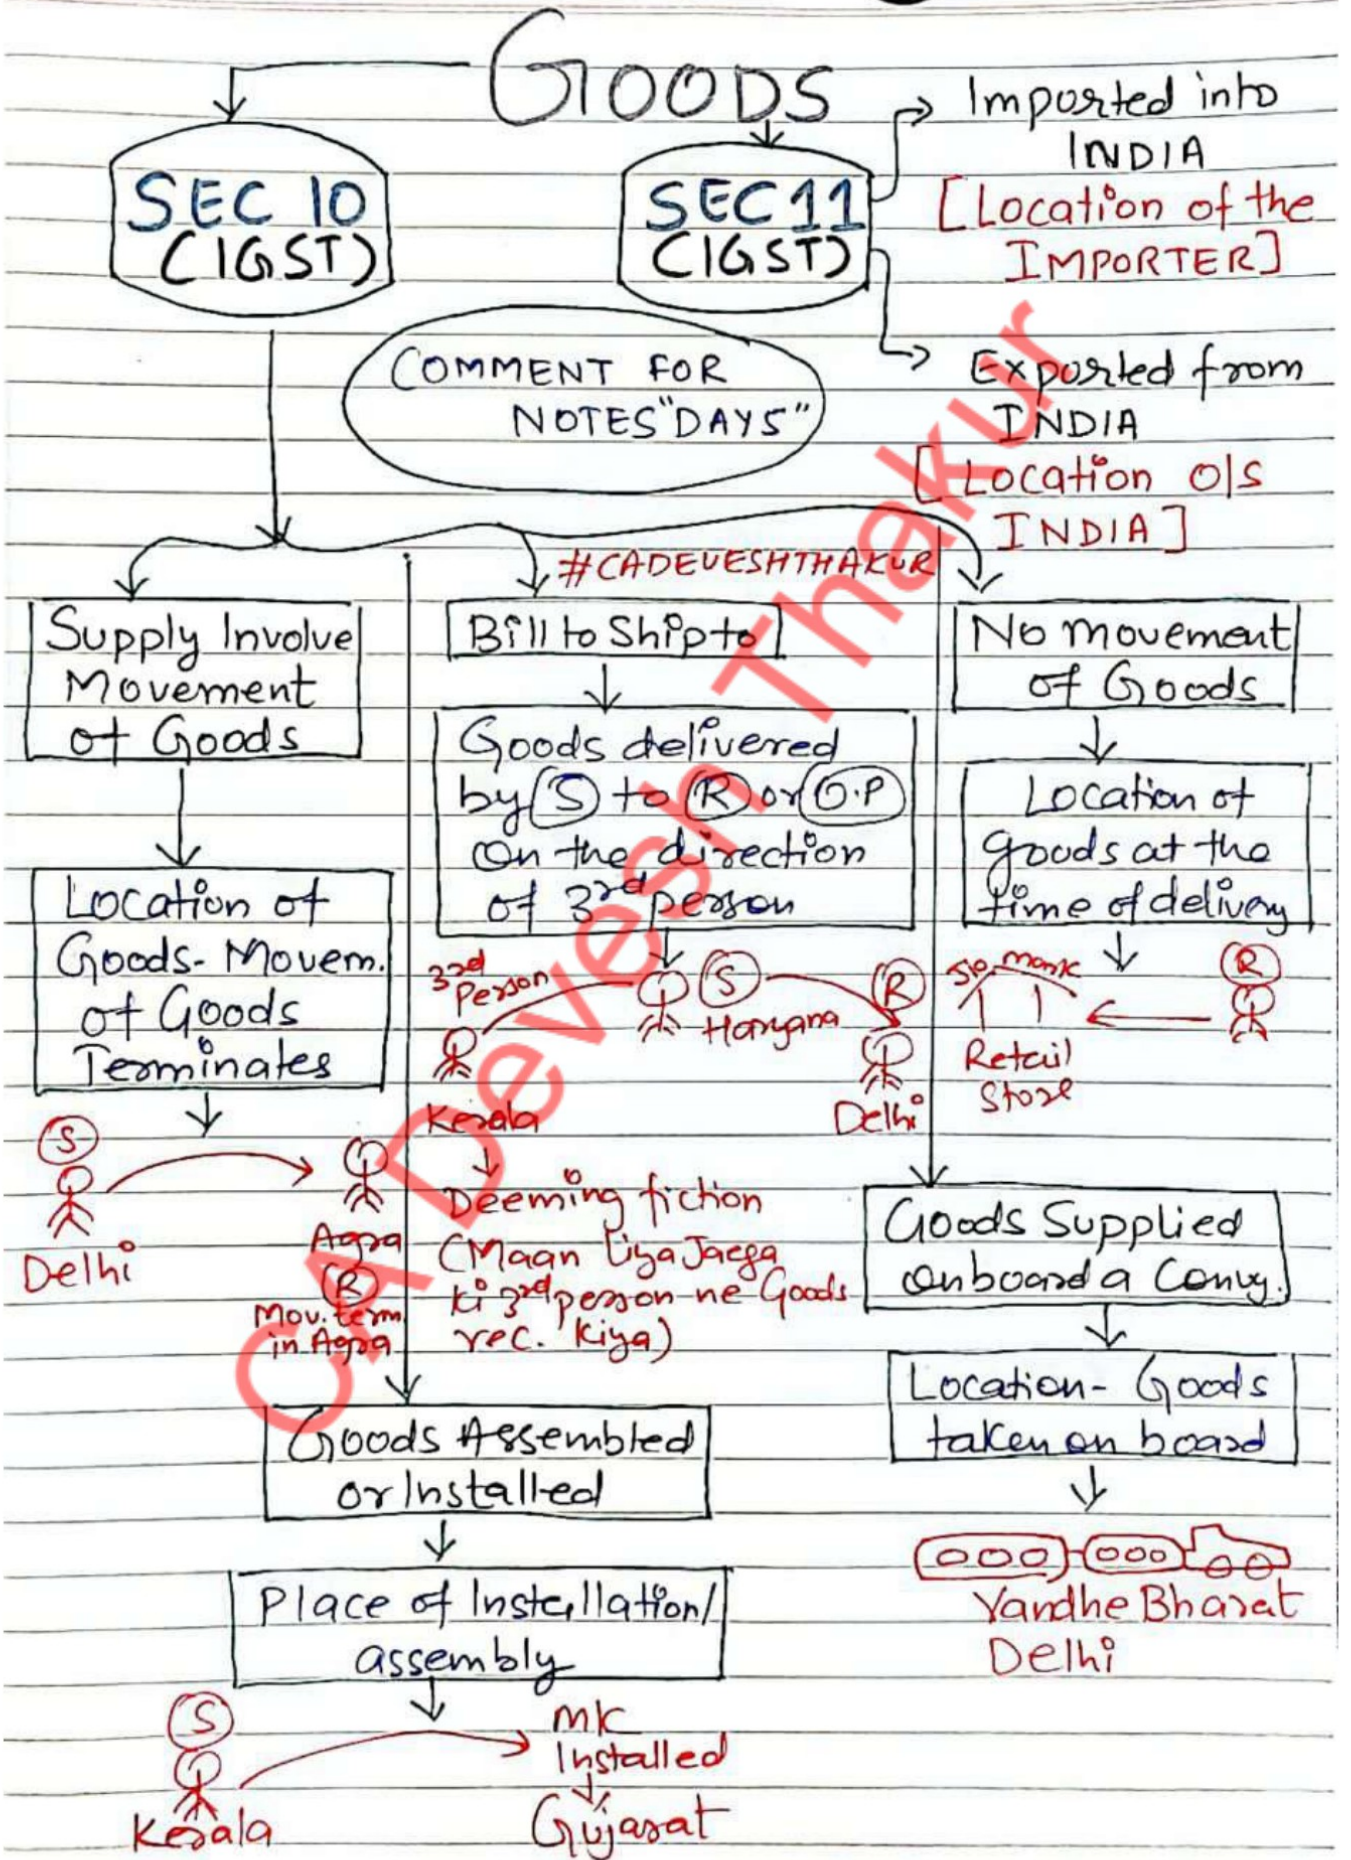 GOODS
SEC 10
(IGST)
SEC 11
(IGST)
Imported into
INDIA
[Location of the
IMPORTER]
Exported from
INDIA
[Location O/S
INDIA]
COMMENT FOR
NOTES "DAYS"
#CADEVESHTHAKUR
Supply Involve
Movement
of Goods
Location of
Goods- Movem.
of Goods
Terminates
S
Delhi
Agra
R
Mov. term.
in Agra
Bill to Ship to
Goods delivered
by S to R or O.P
On the direction
of 3rd person
3rd
Person
Kerala
S
Haryana
R
Delhi
Deeming fiction
(Maan Liya Jaega
ki 3rd person ne Goods
rec. kiya)
No movement
of Goods
Location of
goods at the
time of delivery
R
Retail
Store
Goods Supplied
onboard a Convy.
Location- Goods
taken on board
Vandhe Bharat
Delhi
Goods Assembled
or Installed
Place of Installation/
assembly
S
Kerala
Installed
Gujarat
CA Devesh Thakur